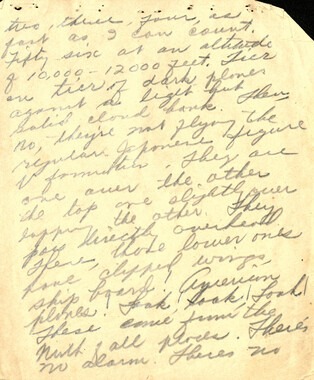 two, three, four, as
fast as I can count.
Fifty six at an altitude
of 10,000-12000 feet. Tier
on tier of dark planes
against a light but
solid cloud bank. Then,
no, they're not flying the
regular Japanese figure
V formation. They are
one over the other
the top one slightly over
the other. They
pass directly overhead
There, those lower ones
have clipped wings,
ship board planes. American
Look! Look! Look!
These come from the
North & all places. There's
no alarm. There's no